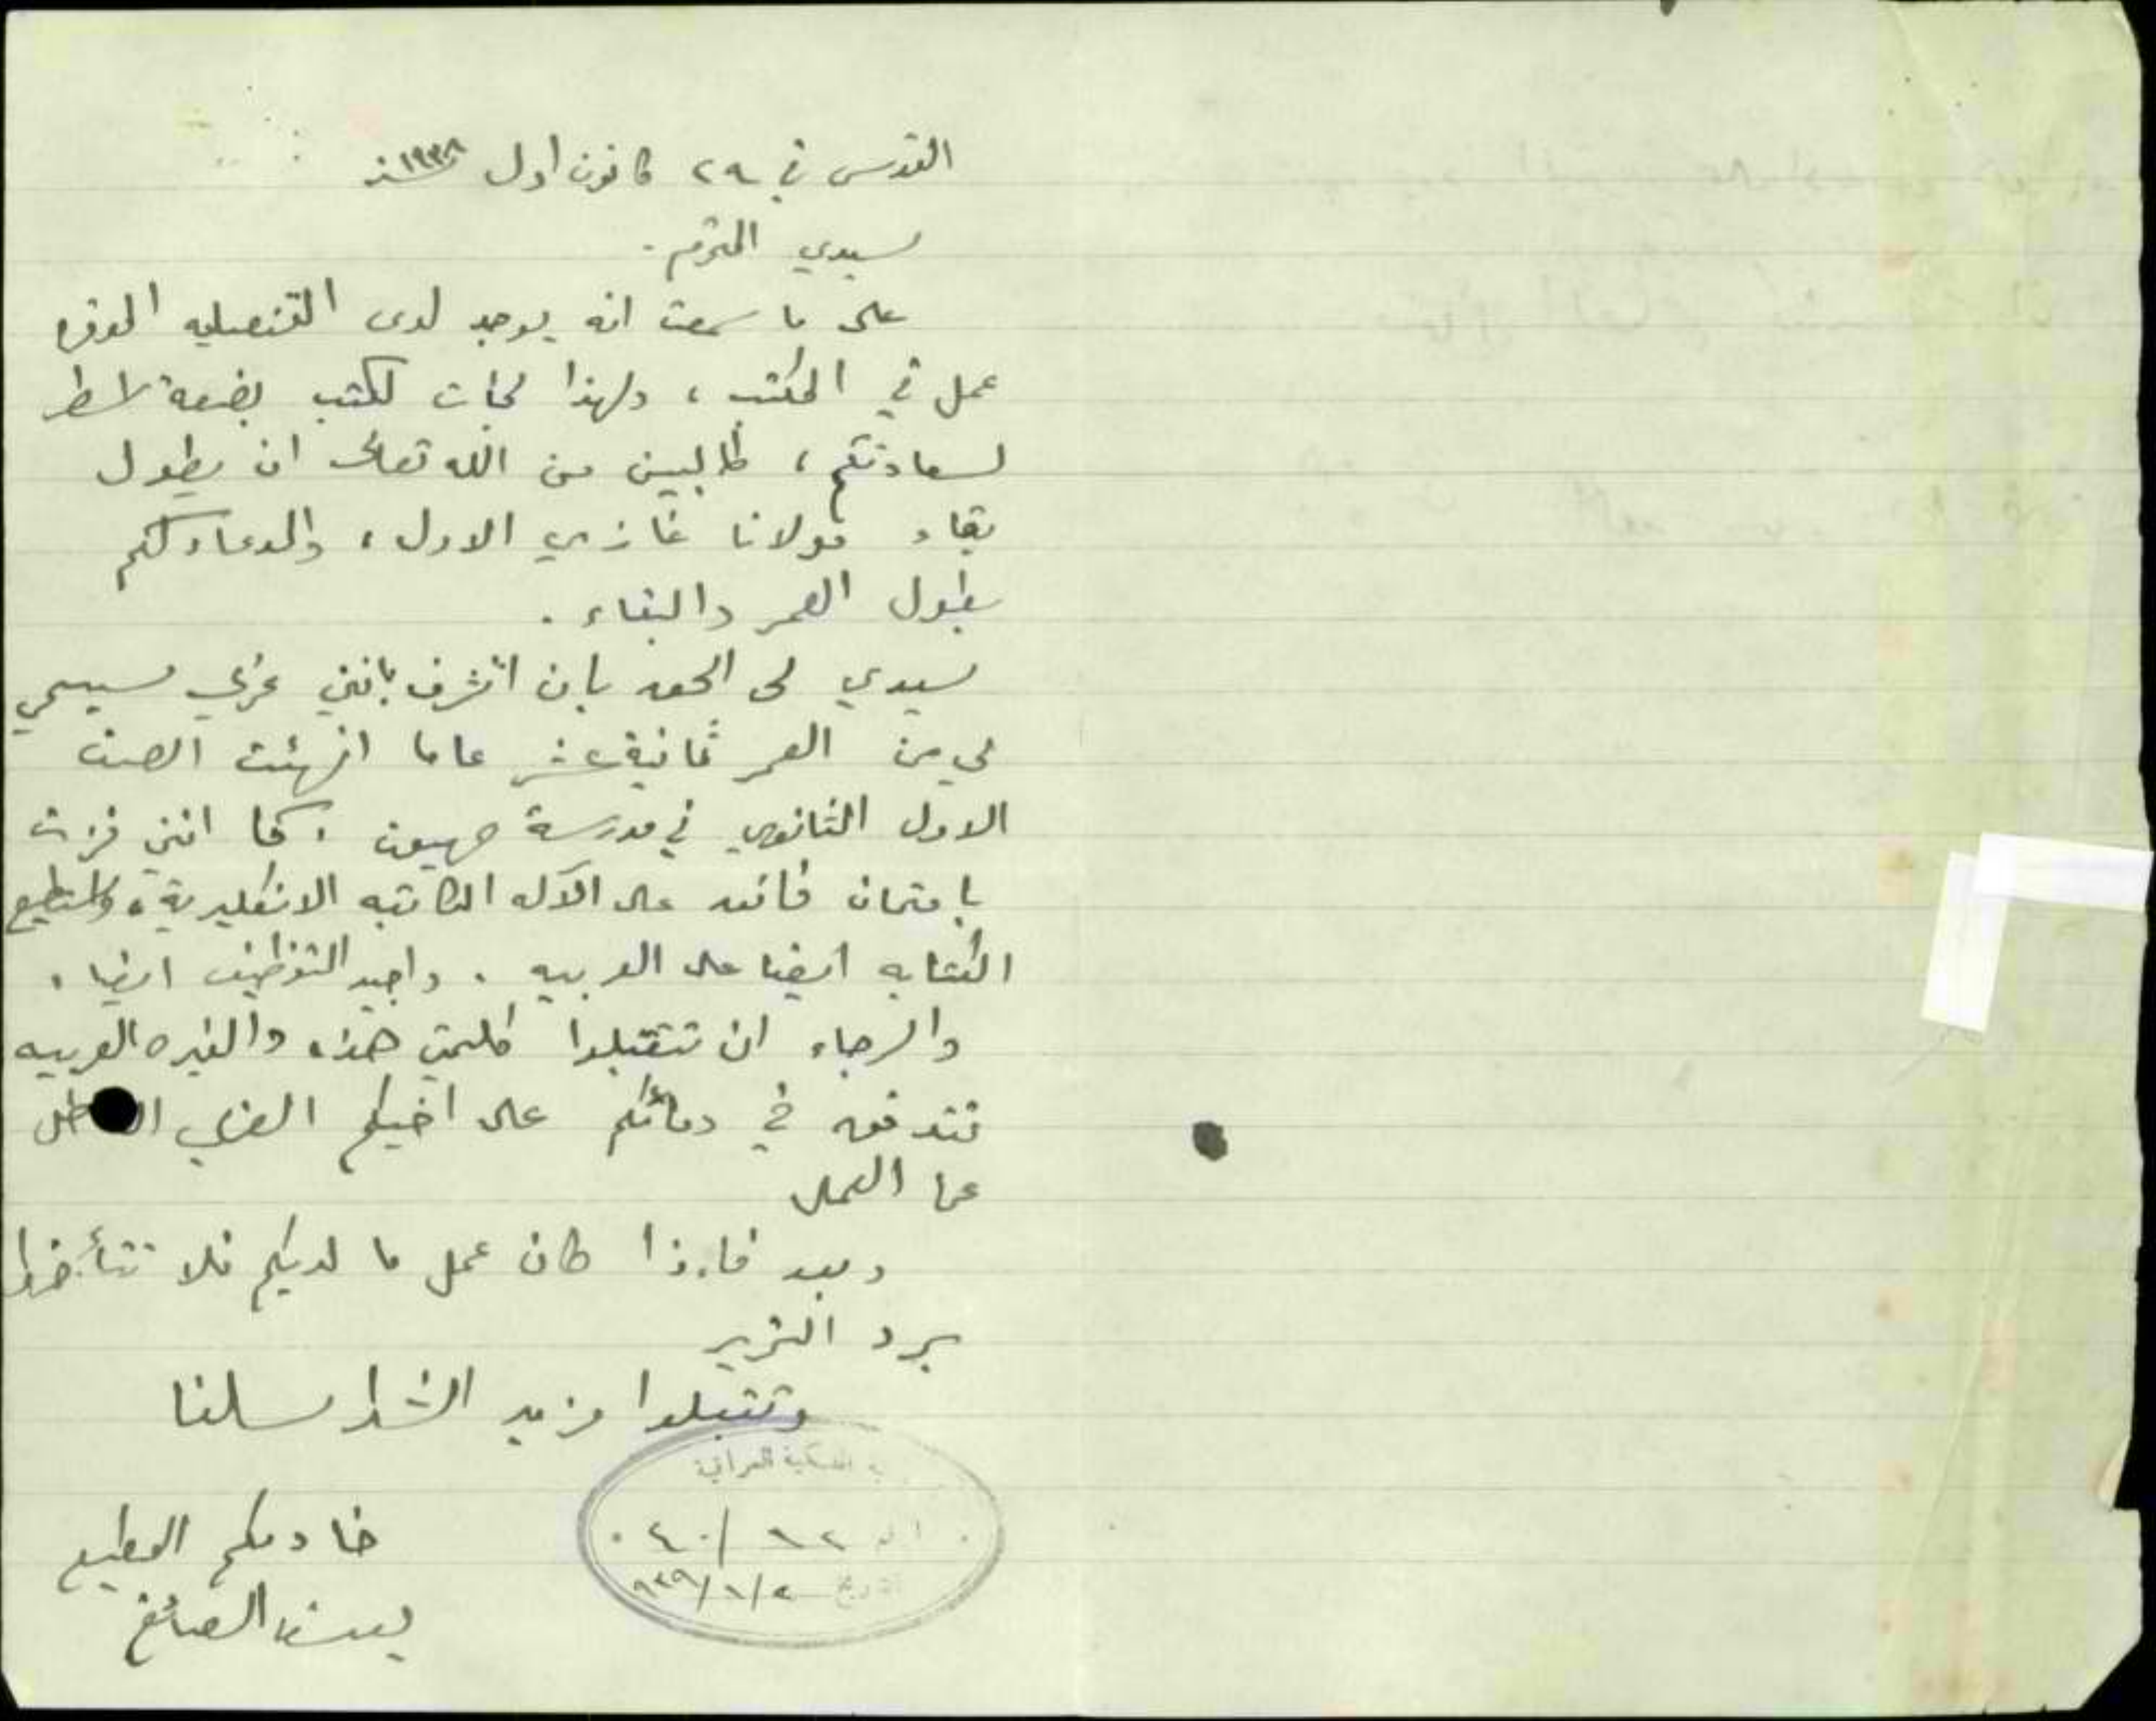 القدس في ٢٩ كانون اول سنة ١٩٣٨
سيدي المحترم .
على ما سمعت انه يوجد لدى القنصليه الموقره
عمل في المكتب ، ولهذا لجأت لكتب بضعة اسطر
لسعادتكم ، طالبين من الله تعالى ان يطول
بقاء مولانا غازي الاول ، والدعاء لكم
بطول العمر والبقاء .
سيدي لي الحق بان اتشرف بانني عربي مسيحي
لي من العمر ثمانية عشر عاما انهئت الصف
الاول الثانوي في مدرسة صهيون . كما انني فزت
بامتحان فائق على الآله الكاتبه الانكليزية ، واستطيع
الكتابه ايضا على العربيه . واجيد التوظيف ايضا .
والرجاء ان تتقبلوا كلمتي هذه والغيره العربيه
تتدفق في دمائكم على اخيكم العربي العاطل
عن العمل
وبعد فاءذا كان عمل ما لديكم فلا تتأخروا
برد
وتقبلوا مزيد الشكر سلفا
العراقية
٦٢ / ٤٠
التاريخ ٢/١/٩٣٩
خادمكم المطيع
يوسف الصائغ